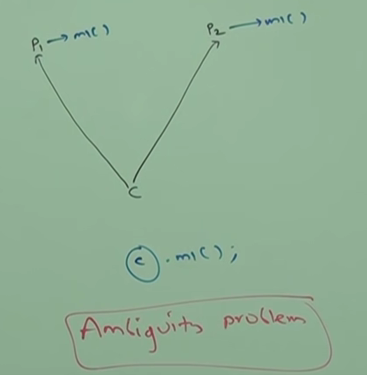 P1 → m1()
P2 → m1()
C
c . m1();
Ambiguity problem